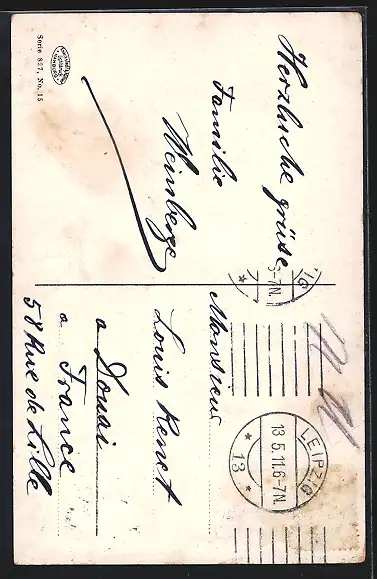 Herzliche grüse
Familie
Weinberge
Serie 827, No. 15
Monsieur
Louis Renet
a Douai
a France
58 Rue de Lille
LEIPZIG
13.5.11.6-7N.
* 13 *